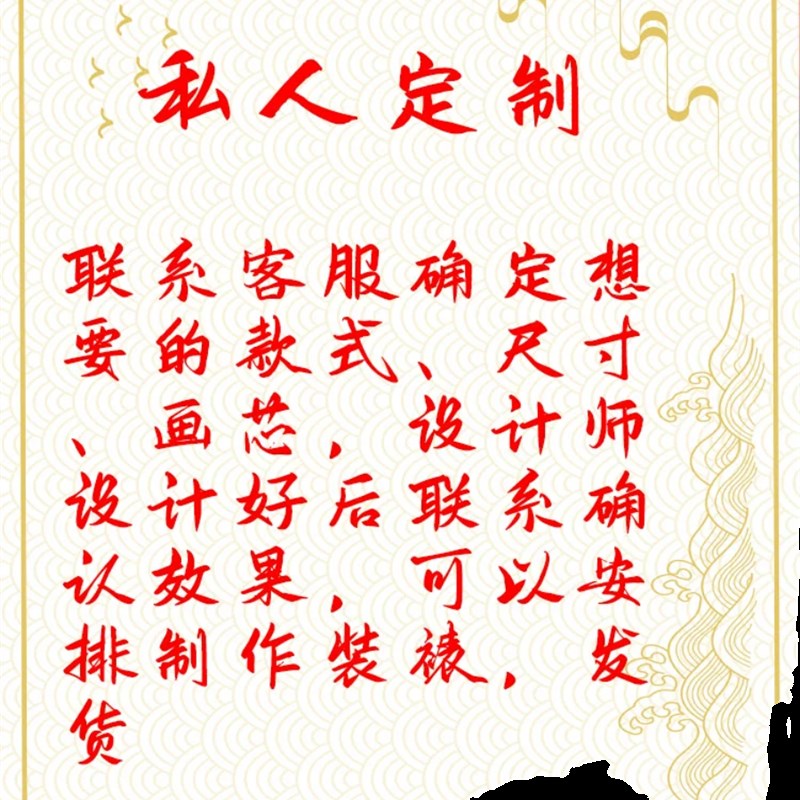 私人定制
联系客服确定想
要的款式、尺寸
、画芯，设计师
设计好后联系确
认效果，可以安
排制作装裱，发
货